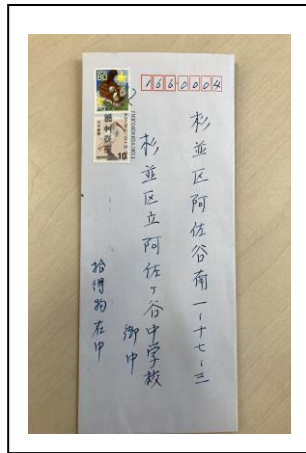 80
10
166-0004
杉並区阿佐谷南一-十七-三
杉並区立阿佐ヶ谷中学校
御中
拾得物在中